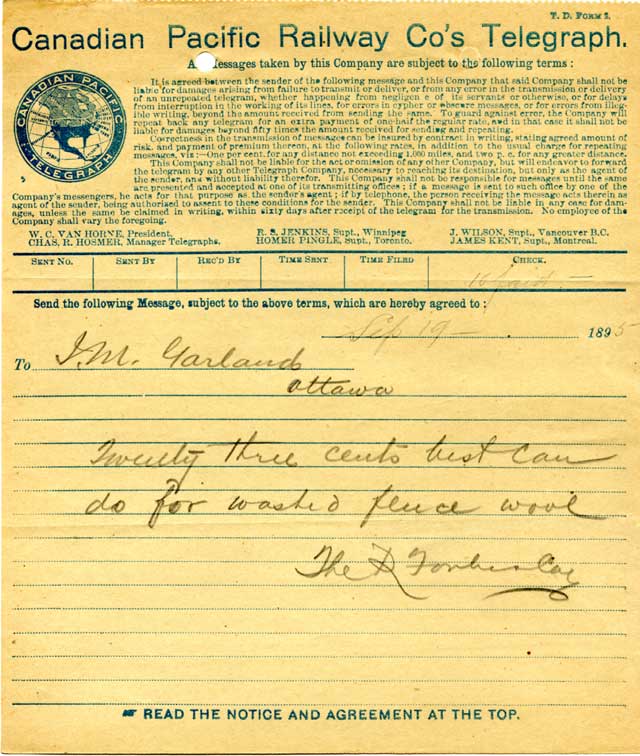 T. D. FORM 2.
Canadian Pacific Railway Co's Telegraph.
All Messages taken by this Company are subject to the following terms :
CANADIAN PACIFIC
TELEGRAPH
It is agreed between the sender of the following message and this Company that said Company shall not be
liable for damages arising from failure to transmit or deliver, or from any error in the transmission or delivery
of an unrepeated telegram, whether happening from negligen e of its servants or otherwise, or for delays
from interruption in the working of its lines, for errors in cypher or obscure messages, or for errors from illeg-
ible writing, beyond the amount received from sending the same. To guard against error, the Company will
repeat back any telegram for an extra payment of one-half the regular rate, and in that case it shall not be
liable for damages beyond fifty times the amount received for sending and repeating.
Correctness in the transmission of messages can be insured by contract in writing, stating agreed amount of
risk, and payment of premium thereon, at the following rates, in addition to the usual charge for repeating
messages, viz :—One per cent. for any distance not exceeding 1,000 miles, and two p. c. for any greater distance.
This Company shall not be liable for the act or omission of any other Company, but will endeavor to forward
the telegram by any other Telegraph Company, necessary to reaching its destination, but only as the agent of
the sender, and without liability therefor. This Company shall not be responsible for messages until the same
are presented and accepted at one of its transmitting offices ; if a message is sent to such office by one of the
Company's messengers, he acts for that purpose as the sender's agent ; if by telephone, the person receiving the message acts therein as
agent of the sender, being authorised to assent to these conditions for the sender. This Company shall not be liable in any case for dam-
ages, unless the same be claimed in writing, within sixty days after receipt of the telegram for the transmission. No employee of the
Company shall vary the foregoing.
W. C. VAN HORNE, President. R. S. JENKINS, Supt., Winnipeg J. WILSON, Supt., Vancouver B.C.
CHAS. R. HOSMER, Manager Telegraphs. HOMER PINGLE, Supt., Toronto. JAMES KENT, Supt., Montreal.
SENT NO. SENT BY REC'D BY TIME SENT TIME FILED CHECK.
10 paid
Send the following Message, subject to the above terms, which are hereby agreed to :
Sep 19 — 1895
To J. M. Garland
Ottawa
Twenty three cents best can
do for washed fleece wool
The R Forbes Co
READ THE NOTICE AND AGREEMENT AT THE TOP.